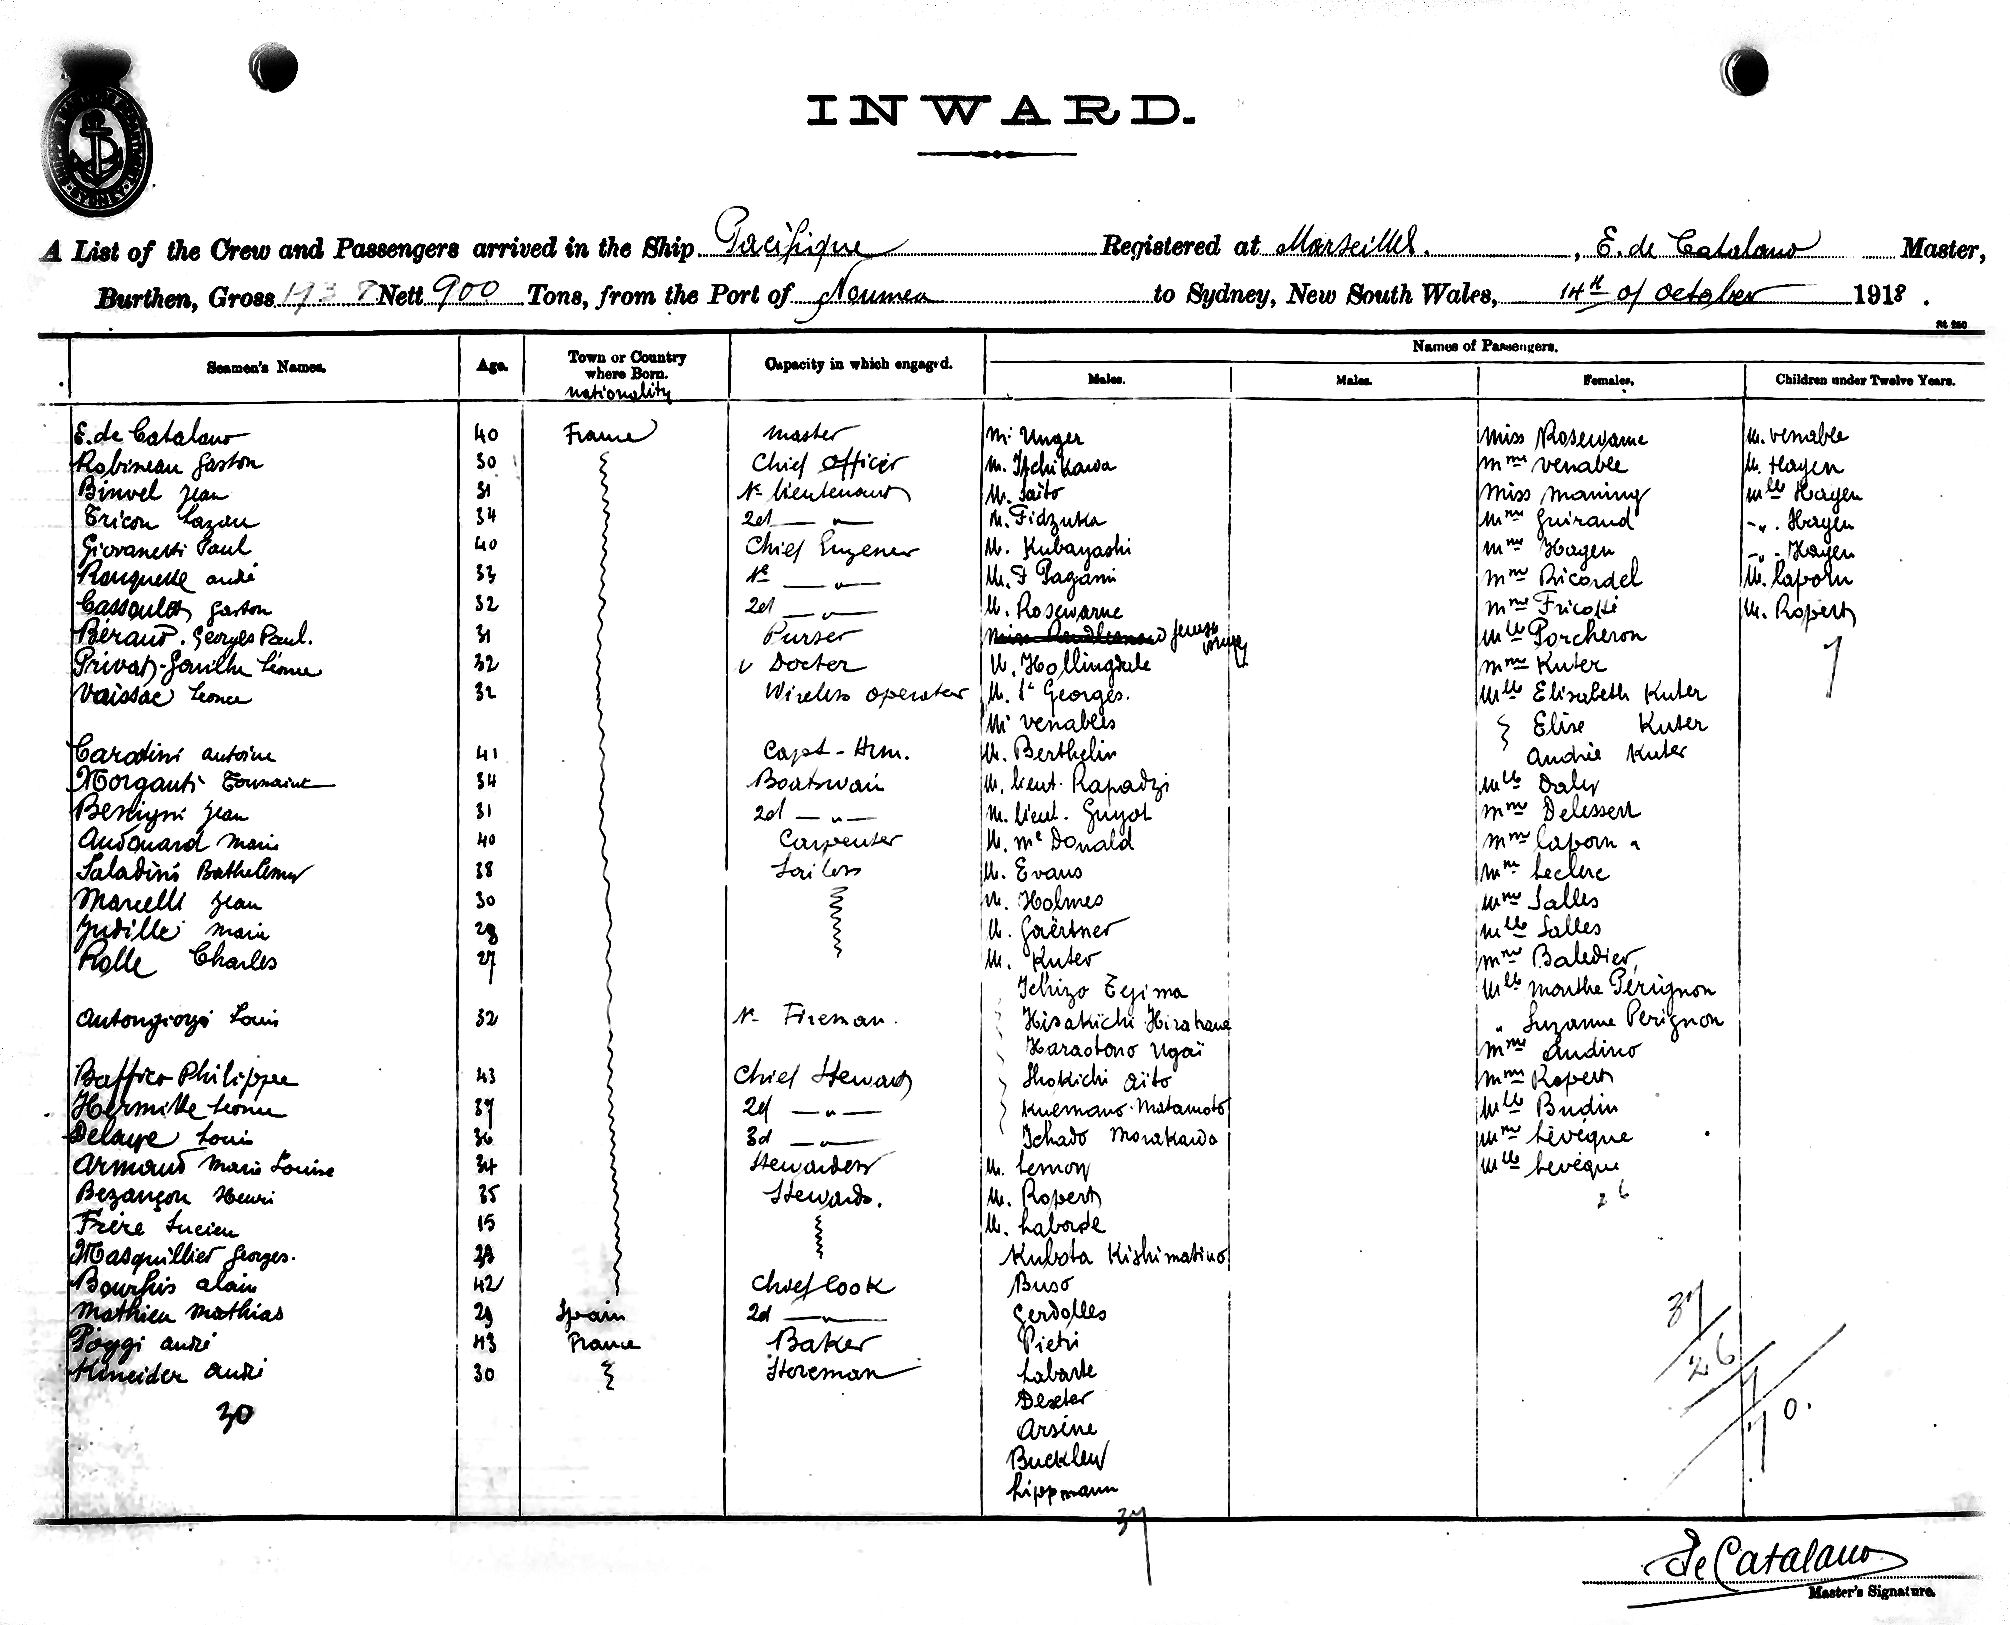 SYDNEY
INWARD.
A List of the Crew and Passengers arrived in the Ship Pacifique Registered at Marseilles. , E. de Catalano Master,
Burthen, Gross 1938 Nett 900 Tons, from the Port of Noumea to Sydney, New South Wales, 14th of October 1918.
Seamen's Names. Age. Town or Country where Born. nationality Capacity in which engaged. Names of Passengers.
Males. Males. Females. Children under Twelve Years.
E. de Catalano 40 France Master Mr Unger Miss Rosewarne M. Venable
Robineau Gaston 30 Chief Officer M. Ischikawa Mme Venable M. Hagen
Binvel Jean 31 1r Lieutenant M. Saïto Miss Maning Mlle Hagen
Tricon Lazare 34 2d — " — M. Fidzuka Mme Guiraud - " . Hagen
Giovanetti Paul 40 Chief Engener M. Kubayashi Mme Hagen - " - Hagen
Rouquette André 33 1r — " — M. F Pagani Mme Ricardel M. Laporn
Cassoulet Gaston 32 2d — " — M. Rosewarne Mme Fricotté M. Ropert
Béraud. Georges Paul. 31 Purser Mlle Porcheron 7
Privat-Gouilhe Léonce 32 v Docter M. Hollingdale Mme Kuter
Vaissac Leonce 32 Wireless operator M. St Georges. Mlle Elisabeth Kuter
Mr Venables Elise Kuter
Carodini Antoine 41 Capt - Arm. M. Berthelin Andrée Kuter
Morganti Toussaint 34 Boatswain M. Lieut. Rapadzi Mlle Daly
Benigni Jean 31 2d — " — M. Lieut. Guyot Mme Delessert
Audouard Marie 40 Carpenter M. Mc Donald Mme Laporn
Saladini Bathelemy 38 Sailors M. Evans Mme Leclerc
Marcelli Jean 30 M. Holmes Mme Salles
Judille Marie 29 M. Gaërtner Mlle Salles
Rolle Charles 27 M. Kuter Mme Baledier
Ichizo Tejima Mlle Marthe Pérignon
Antongiorgi Louis 32 1r Fireman. Hisakichi Hirahana " Suzanne Perignon
Haraotono Ugaï Mme Audino
Baffico Philippe 43 Chief Steward Shokichi Aïto Mme Ropert
Hermitte Leonce 37 2d — " — Kuemano Matamoto Mlle Budin
Delaye Louis 36 3d — " — Ichado Morakawa Mme Lévéque
Armand Marie Louise 34 Stewardess M. Lemoy Mlle Levéque
Bezançon Henri 35 Stewards. M. Ropert 26
Frère Lucien 15 M. Laborde
Masquillier Georges. 29 Kubota Kishimatino
Bourhis Alain 42 Chief Cook Buso
Mathieu Mathias 29 Spain 2d — " — Gerdolles 37
Poggi André 43 France Baker Pietri 26
Kineider André 30 Storeman Labarte 7
30 Dexter 70.
Arsène
Buckley
Lippmann
37
de Catalano
Master's Signature.